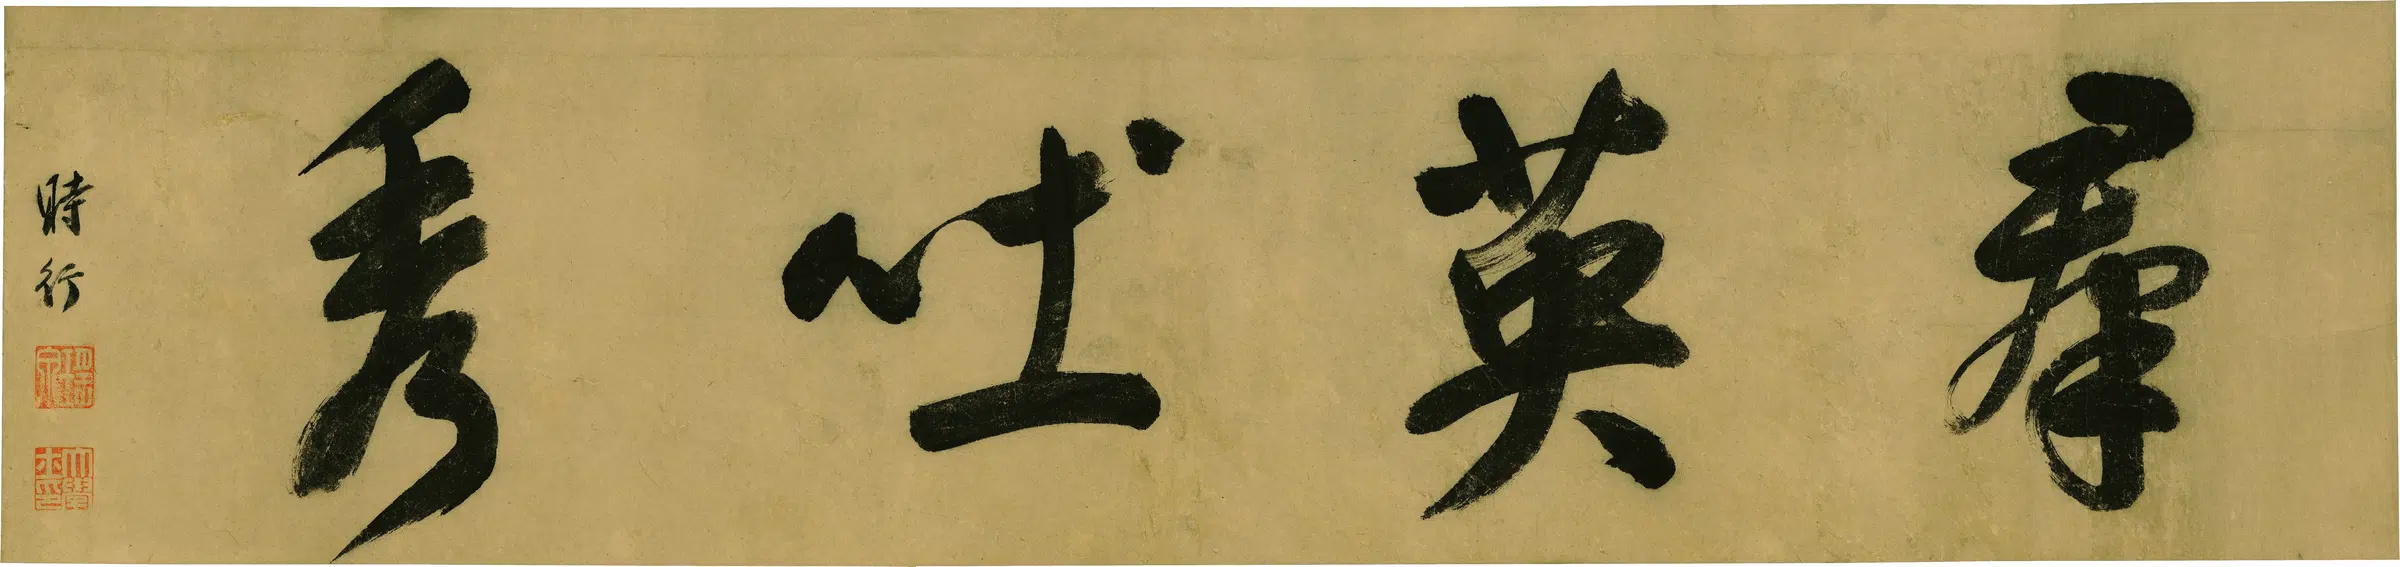 羣英吐秀
時行